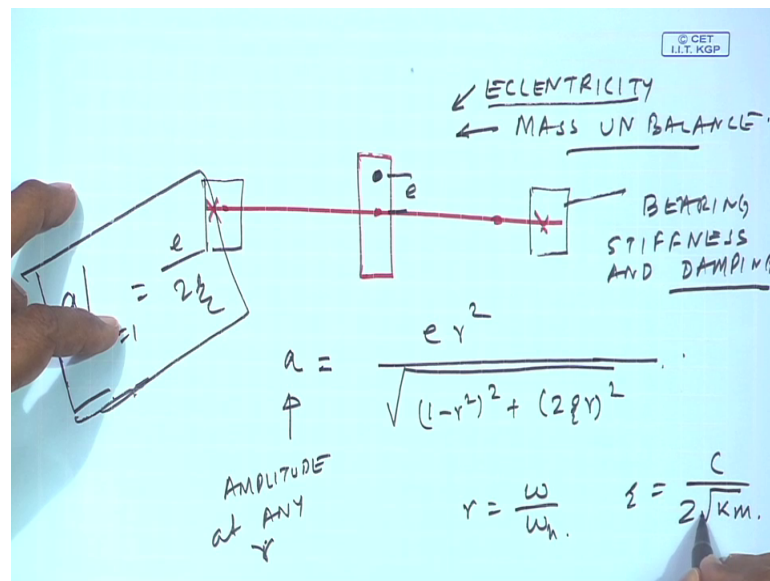 © CET
I.I.T. KGP
↙ ECLENTRICITY
← MASS UNBALANCE.
e
BEARING
STIFFNESS
AND DAMPIN
a| =1 = e / 2ξ
a = e r² / √((1-r²)² + (2ξr)²)
AMPLITUDE
at ANY
r
r = ω / ωn.
ξ = C / 2√Km.